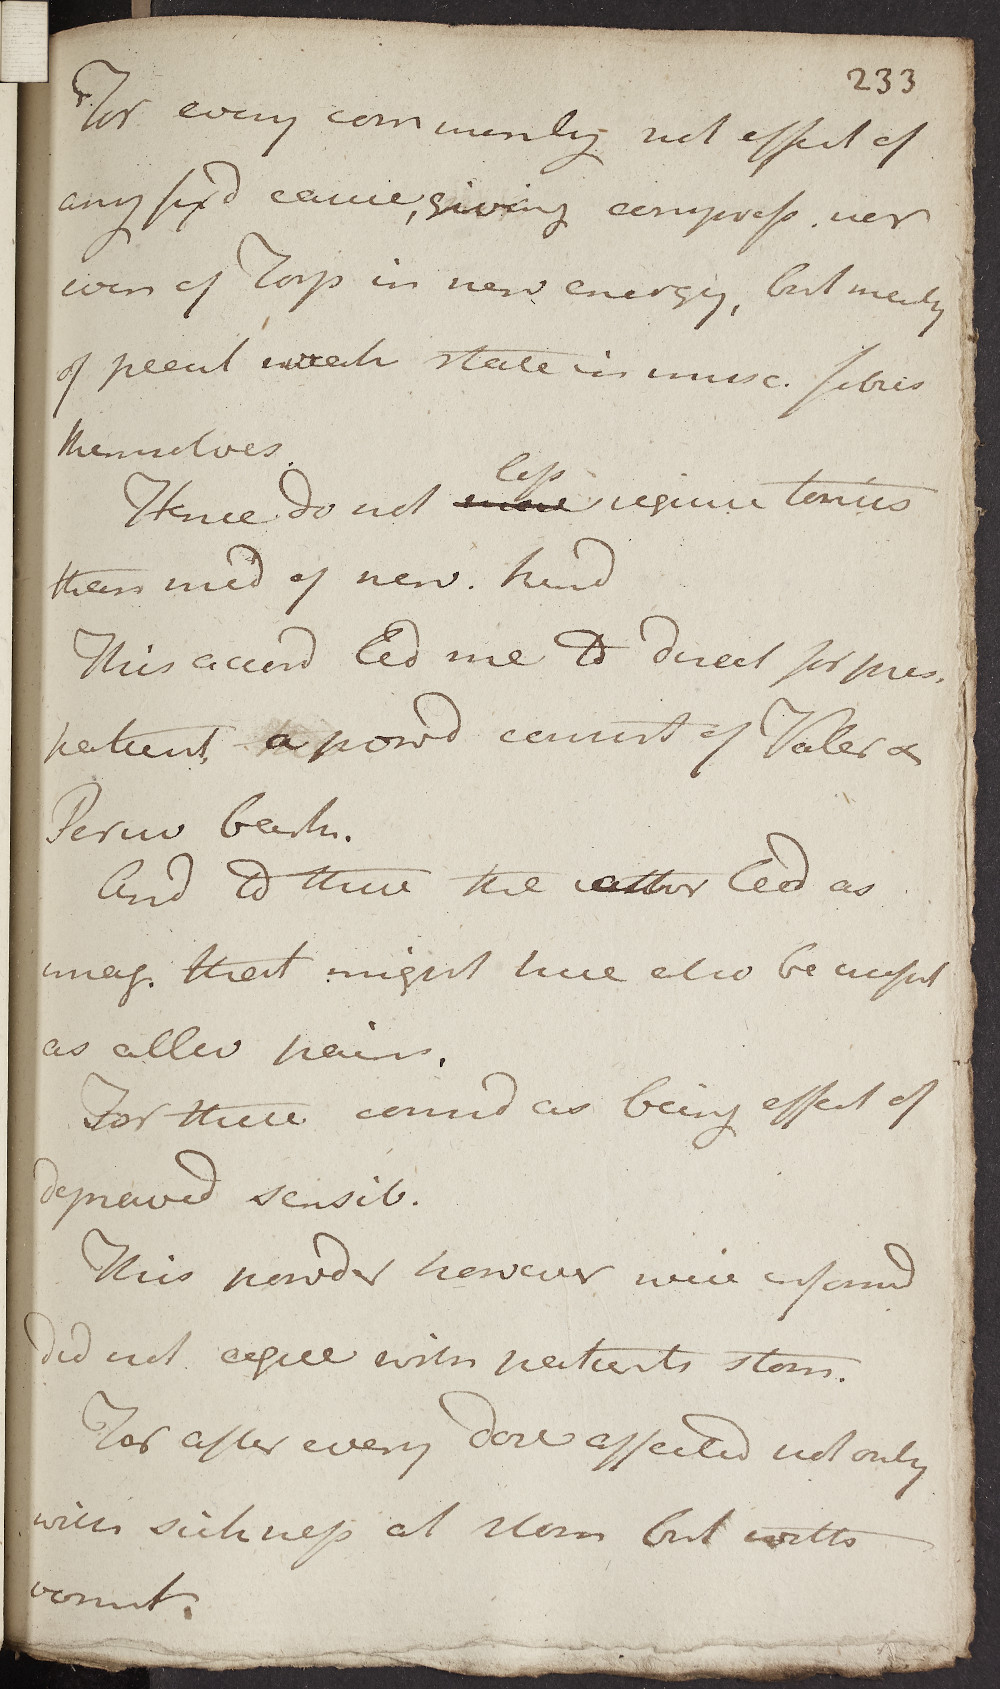 233
For every commonly not effect of
any fix'd cause, giving compress. ner
even of Torp in nerv energy, but merely
of peculi weak state in musc. fibres
themselves.
Hence do not less more require tonics
than med of nerv. kind
This accord led me to direct for pres.
patient, a powd consist of Valer &
Peruv bark.
And to these the latter led as
imag. that might here also be usefull
as allev pains.
For these consid as being effect of
depraved sensib.
This powder however were inform'd
did not agree with patients stom.
For after every dose affected not only
with sickness at stom but with
vomit.